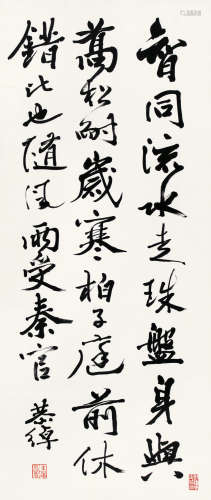 智同流水走珠盤身與
萬松耐歲寒柏子庭前休
錯比也隨雨受秦官
恭綽